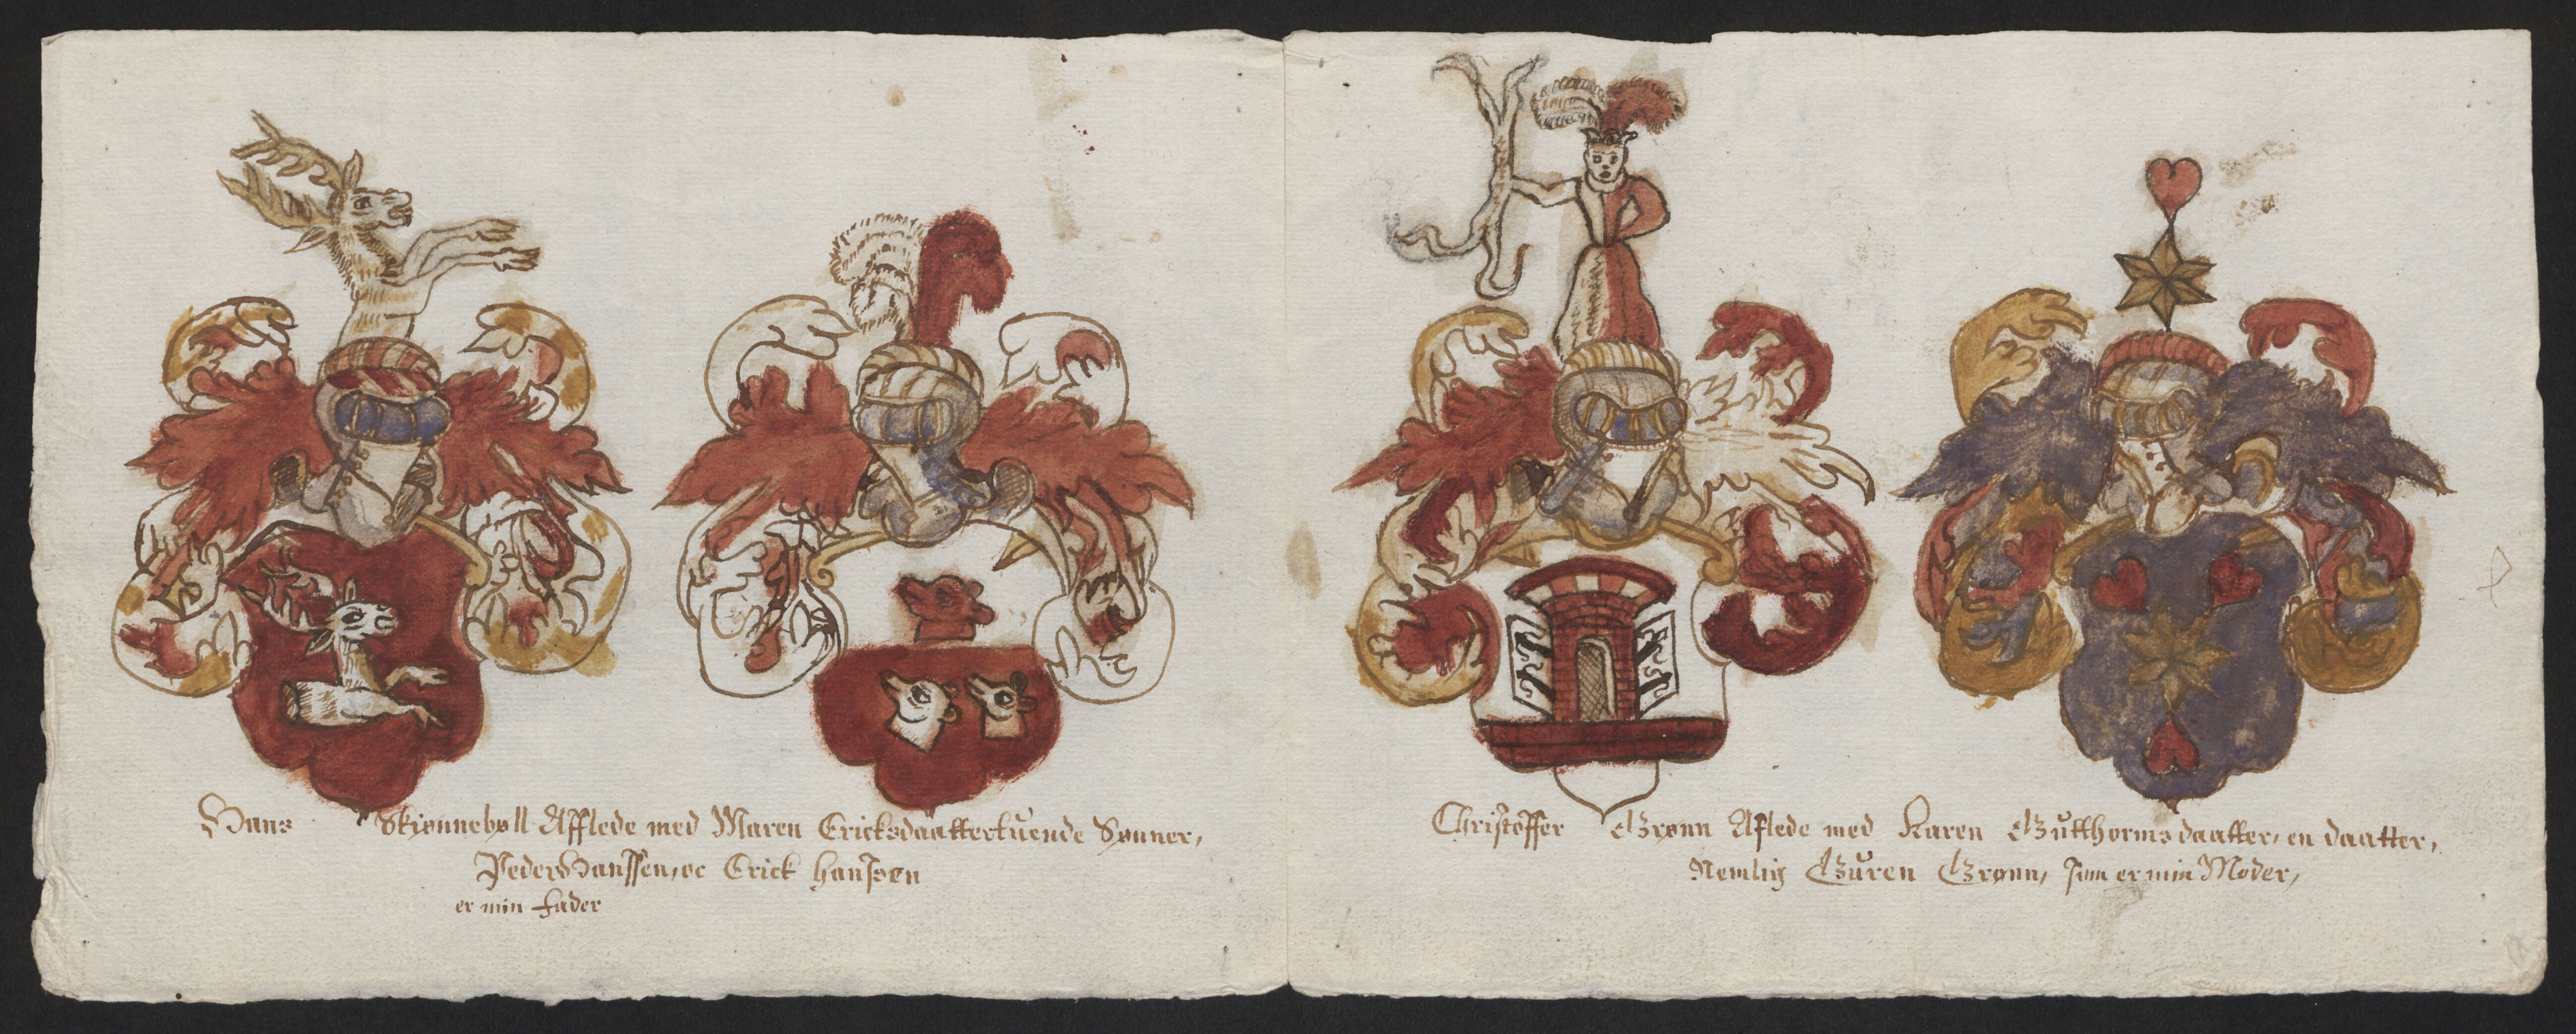 Hans Skiønnebøll Afflede med Maren Ericksdaatter tuende Sønner,
Peder Hanssen, oc Erick Hanssøn
er min fader
Christoffer Grønn Aflede med Karen Gutthormsdaatter, en daatter,
Nemlig Guren Grønn, som er min Moder,